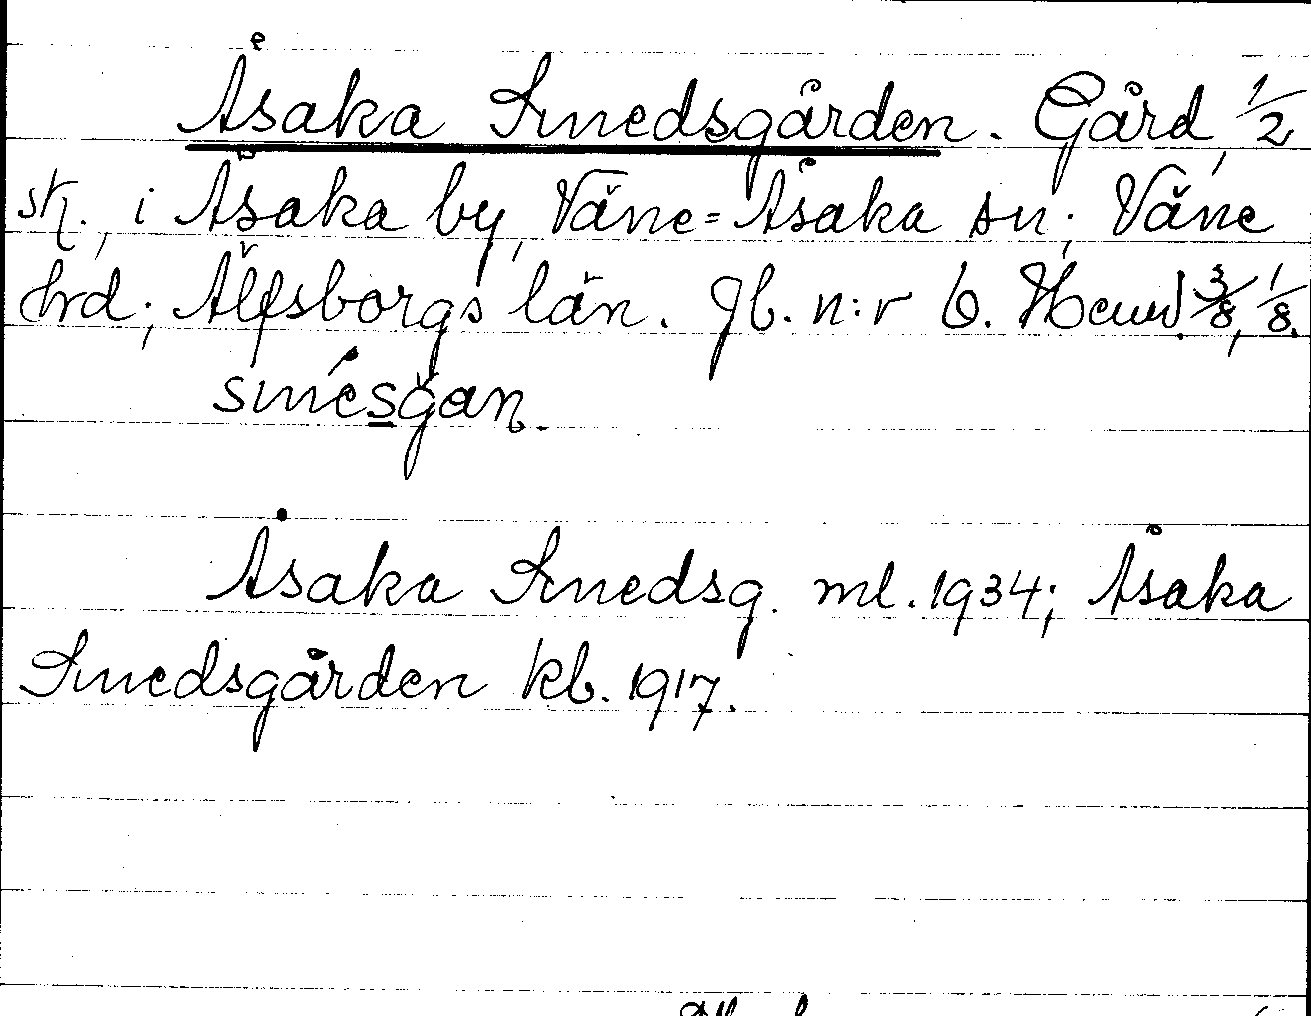 Åsaka Smedsgården. Gård, 1/2
sk., i Åsaka by, Väne-Åsaka sn; Väne
hrd; Älfsborgs län. Jb. n:r 6. Hemd. 3/8, 1/8.
smésgan.
Åsaka Smedsg. ml. 1934; Åsaka
Smedsgården kb. 1917.